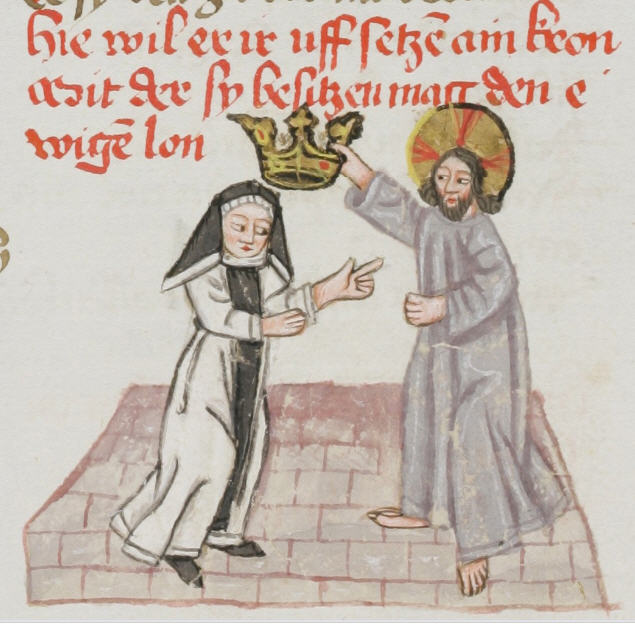 Hie wil er ir uff setzē ain kron
Mit der sy besitzen mag den e
wigē lon